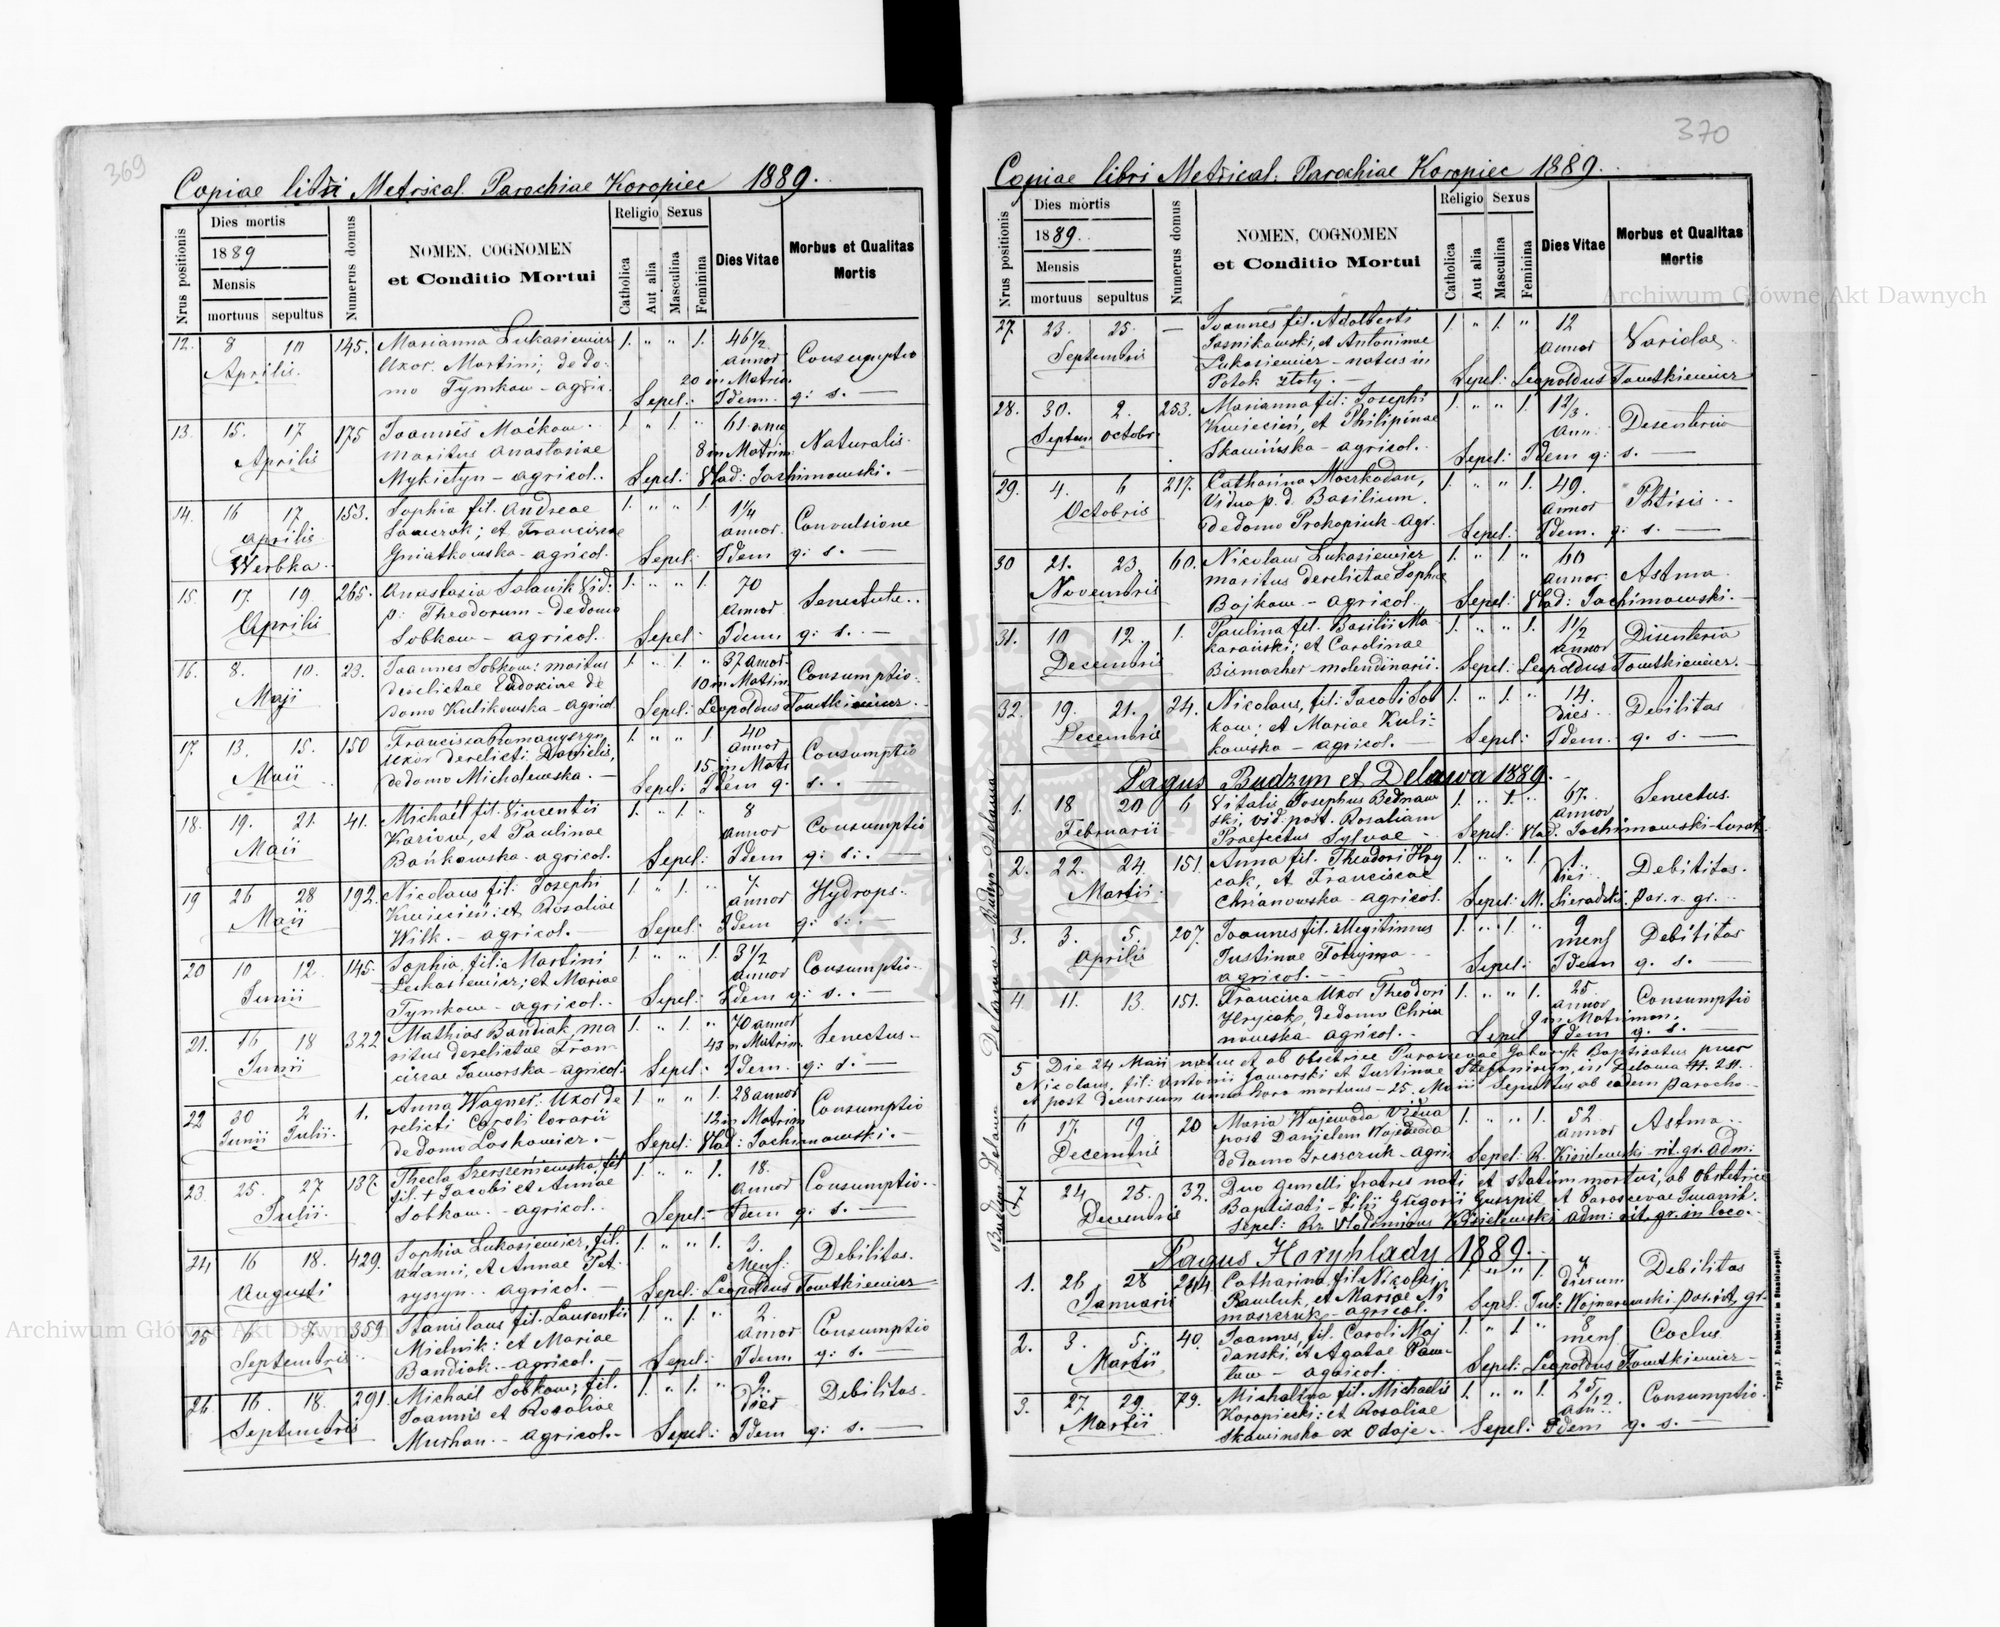 369
Copiae libri Metrical. Parochiae Koropiec 1889.
Nrus positionis
Dies mortis
1889
Mensis
mortuus sepultus
Numerus domus
NOMEN, COGNOMEN
et Conditio Mortui
Religio Sexus
Catholica
Aut alia
Masculina
Feminina
Dies Vitae
Morbus et Qualitas
Mortis
12. 8 10 145. Marianna Łukasiewicz 1. " " 1. 46 1/2
Aprilis. Uxor. Martini, de do- annor Consumptio
mo Tymkow - agric. 20 in Matrim.
Sepel: Idem. q: s. —
13. 15. 17 175 Joannes Maćkow. 1 " 1. " 61 anno
Aprilis maritus Anastasiae 8 in Matrim. Naturalis.
Mykietyn - agricol. Sepel: Vlad: Jachimowski. —
14. 16 17 153. Sophia fil. Andreae 1. " " 1. 1 1/4
Aprilis. Sawczuk; et Franciscae annor. Convulsione
Werbka. Gniatkowska - agricol. Sepel: Idem q: s. —
15. 17. 19 265. Anastasia Solanik Vid: 1. " " 1. 70
Aprilis p: Theodorum - de domo annor Senectute.
Sobkow - agricol. Sepel: Idem q: s. —
16. 8. 10. 23. Joannes Sobkow: maritus 1. " 1. " 37 annor.
Maji derelictae Eudoxiae de 10 in Matrim. Consumptio.
domo Kulikowska - agricol. Sepel: Leopoldus Tawtkiewicz. —
17. 13. 15. 150 Francisca Romanyszyn 1. " " 1 40
Maii uxor derelicti Danielis, annor Consumptio
de domo Michalewska. — 15 in Mat:
Sepel: Idem q: s. —
18. 19. 21. 41. Michaël fil. Vincentii 1. " 1. " 8
Maii Kariow, et Paulinae annor Consumptio
Bańkowska - agricol. Sepel: Idem q: s: —
19 26 28 192. Nicolaus fil: Josephi 1 " 1. " 7. Hydrops.
Maii Kwiecień: et Rosaliae annor
Wilk. — agricol. — Sepel: Idem q: s: —
20 10 12. 145. Sophia, fil: Martini 1. " " 1. 3 1/2
Junii Łukasiewicz; et Mariae annor Consumptio.
Tymkow - agricol. Sepel: Idem q: s. —
21. 16 18 322 Mathias Bandiak, ma 1. " 1. " 70 annor
Junii ritus derelictae Fran- 43 in Matrim. Senectus.
ciscae Jaworska - agricol: Sepel: Idem. q: s: —
22 30 2 1. Anna Wagner: Uxor de 1 " " 1. 28 annor
Junii Julii. relicti Caroli lorarii 12 in Matrim Consumptio
de domo Loskowicz. — Sepel: Vlad: Jachimowski. —
23. 25. 27 137. Thecla Szerszeniewska, fil 1. " " 1. 18.
Julii. fil. + Jacobi et Annae annor Consumptio.
Sobkow. - agricol. Sepel: - Idem q: s. —
24 16 18. 429. Sophia Łukasiewicz, fil. 1. " " 1. 3.
Augusti Adami, et Annae Pet- Mens: Debilitas.
ryszyn. agricol. — Sepel: Leopoldus Tawtkiewicz
25 6 7. 359 Stanislaus fil. Laurentii 1. " 1. " 2.
Septembris Michnik: et Mariae annor Consumptio
Bandiak. - agricol. — Sepel: Idem q: s. —
26. 16. 18. 291. Michael Sobkow; fil. 1. " 1. " 9.
Septembris Joannis et Rosaliae Dies Debilitas.
Murhan. - agricol. - Sepel: Idem q: s. —
370
Copiae libri Metrical: Parochiae Koropiec 1889.
Nrus positionis
Dies mortis
1889.
Mensis
mortuus sepultus
Numerus domus
NOMEN, COGNOMEN
et Conditio Mortui
Religio Sexus
Catholica
Aut alia
Masculina
Feminina
Dies Vitae
Morbus et Qualitas
Mortis
27. 23. 25. — Joannes fil. Adalberti 1. " 1. " 12
Septembris Jasnikowski, et Antoninae annor Variolae.
Łukasiewicz - natus in
Potok złoty. — Sepel: Leopoldus Tawtkiewicz
28. 30. 2. 253. Marianna fil: Josephi 1. " " 1. 1 2/3.
Septem Octobr. Kwiecień, et Philipinae Ann: Desenteria
Skowińska - agricol. Sepel: Idem q: s. —
29. 4. 6 217. Catharina Moczkodan, 1. " " 1. 49.
Octobris Vidua p. d. Basilium annor Phtisis.
de domo Prokopiuk - agr. Sepel: Idem. q: s. —
30 21. 23. 60. Nicolaus Łukasiewicz 1. " 1. " 60
Novembris maritus derelictae Sophiae annor. Astma.
Bojkow - agricol. Sepel: Vlad: Jachimowski. —
31. 10 12. 1. Paulina fil. Basilii Ma- 1. " " 1. 1 1/2
Decembris karański; et Carolinae annor Disenteria
Bismacher molendinarii. Sepel: Leopoldus Tawtkiewicz. —
32. 19. 21. 24. Nicolaus, fil: Jacobi Sob 1. " 1. " 14.
Decembris kow; et Mariae Kuli- Dies. Debilitas
kowska - agricol. — Sepel: Idem. q. s. —
Pagus Budzyn et Delawa 1889.
Budzyn Delawa Delawa Budzyn-Delawa
1. 18 20 6 Vitalis Josephus Bednaw 1. " 1. " 67. Senectus.
Februarii ski, vid. post. Rosaliam annor
Praefectus Sylvae - Sepel: Vlad. Jachimowski-Curat.
2. 22. 24. 151. Anna fil. Theodori Hry 1. " " 1. 1.
Martii cak, et Franciscae Dies Debilitas.
Chrzanowska - agricol. Sepel: M. Sieradzki. par. r. gr.
3. 3. 5. 207. Joannes fil. illegitimus 1. " 1. " 9
Aprilis Justinae Fotryma mens Debilitas
agricol. — Sepel: Idem q. s. —
4 11. 13. 151. Francisca Uxor Theodori 1. " " 1. 25.
Hrycak, de domo Chrza annor Consumptio
nowska - agricol. 9 in Matrimon.
Sepel Idem q. s. —
5 Die 24 Maii natus et ab obstetrice Parascevae Gabaryk Baptisatus puer
Nicolaus, fil: Antonii Jaworski et Justinae Stefaniszyn, in Delawa
et post decursum unius hora mortuus - 25. Maii Sepultus ab eodem parocho.
6 17. 19 20 Maria Wojewoda Vidua 1. " " 1. 52
Decembris post Danielem Wojewoda annor Astma.
de domo Greszczuk - agric Sepel: R. Kisielewski rit. gr. adm:
7 24 25. 32. Duo gemelli fratres nati et statim mortui, ab obstetrice
Decembris Baptisati - filii Gregorii Guszpit et Parascevae Iwanik.
Sepel: Rr Vlodemirus Kisielewski adm: rit. gr. in loco.
Pagus Horyhlady 1889.
1. 26 28 244. Catharina, fil. Nicolai 1. " " 1. 4
Januarii Pawluk, et Mariae Ni dierum Debilitas
moszczuk - agricol. Sepel: Jul: Wojnarowski par. rit. gr.
2. 3. 5. 40. Joannes, fil. Caroli Maj 1. " 1. " 8 Coclus.
Martii danski, et Agatae Paw- mens
luw - agricol. Sepel: Leopoldus Tawtkiewicz
3. 27. 29. 79. Michalina fil. Michaelis 1. " " 1. 2 5/12.
Martii Koropiecki: et Rosaliae ann: Consumptio.
Skowinska ex Odaje. Sepel: Idem q. s. —
Typis J. Dankiewicz in Stanislaopoli.
Archiwum Główne Akt Dawnych
Archiwum Główne Akt Dawnych